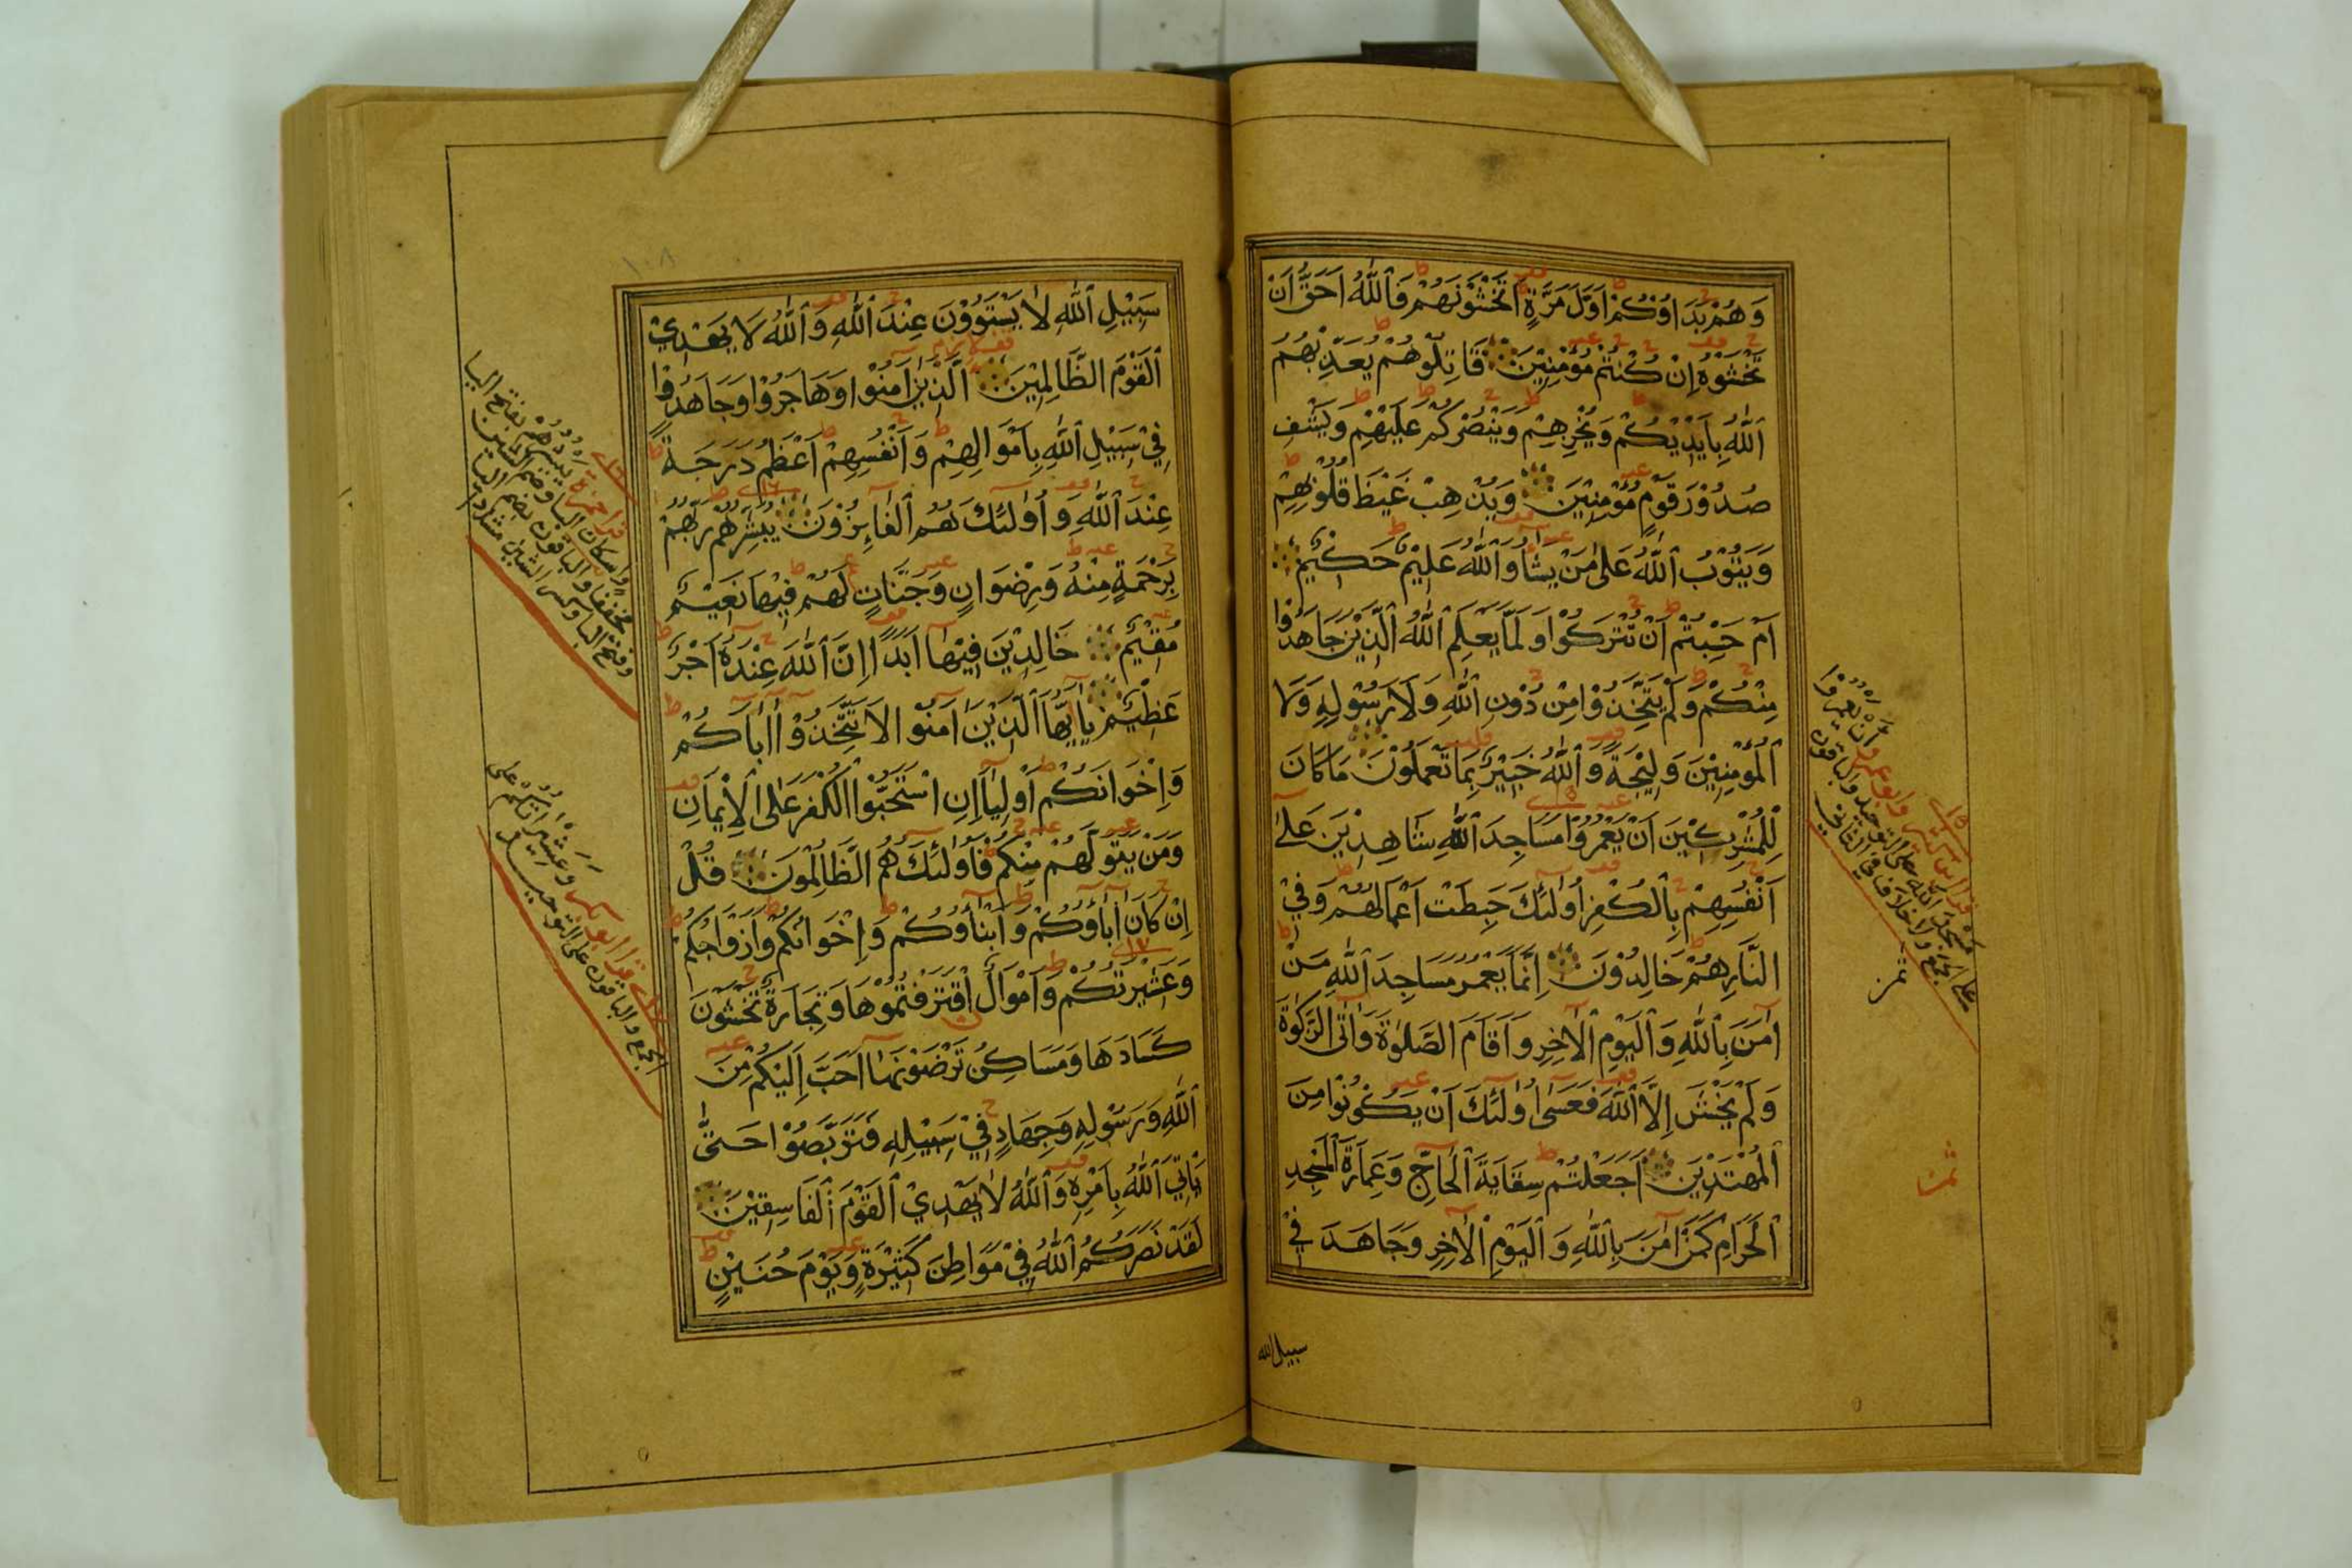 وَهُمْ بَدَاوُكُمْ اَوَّلَ مَرَّةٍ اَتَخْشَوْنَهُمْ فَاللّٰهُ اَحَقُّ اَنْ
تَخْشَوْهُ اِنْ كُنْتُمْ مُؤْمِنِيْنَ قَاتِلُوْهُمْ يُعَذِّبْهُمُ
اللّٰهُ بِاَيْدِيْكُمْ وَيُخْزِهِمْ وَيَنْصُرْكُمْ عَلَيْهِمْ وَيَشْفِ
صُدُوْرَ قَوْمٍ مُؤْمِنِيْنَ وَيُذْهِبْ غَيْظَ قُلُوْبِهِمْ
وَيَتُوْبُ اللّٰهُ عَلٰى مَنْ يَشَاۤءُ وَاللّٰهُ عَلِيْمٌ حَكِيْمٌ
اَمْ حَسِبْتُمْ اَنْ تُتْرَكُوْا وَلَمَّا يَعْلَمِ اللّٰهُ الَّذِيْنَ جَاهَدُوْا
مِنْكُمْ وَلَمْ يَتَّخِذُوْا مِنْ دُوْنِ اللّٰهِ وَلَا رَسُوْلِهِ وَلَا
الْمُؤْمِنِيْنَ وَلِيْجَةً وَاللّٰهُ خَبِيْرٌ بِمَا تَعْمَلُوْنَ مَا كَانَ
لِلْمُشْرِكِيْنَ اَنْ يَعْمُرُوْا مَسَاجِدَ اللّٰهِ شَاهِدِيْنَ عَلٰى
اَنْفُسِهِمْ بِالْكُفْرِ اُولٰئِكَ حَبِطَتْ اَعْمَالُهُمْ وَفِي
النَّارِ هُمْ خَالِدُوْنَ اِنَّمَا يَعْمُرُ مَسَاجِدَ اللّٰهِ مَنْ
اٰمَنَ بِاللّٰهِ وَالْيَوْمِ الْاٰخِرِ وَاَقَامَ الصَّلٰوةَ وَاٰتَى الزَّكٰوةَ
وَلَمْ يَخْشَ اِلَّا اللّٰهَ فَعَسٰى اُولٰئِكَ اَنْ يَكُوْنُوْا مِنَ
الْمُهْتَدِيْنَ اَجَعَلْتُمْ سِقَايَةَ الْحَاۤجِّ وَعِمَارَةَ الْمَسْجِدِ
الْحَرَامِ كَمَنْ اٰمَنَ بِاللّٰهِ وَالْيَوْمِ الْاٰخِرِ وَجَاهَدَ فِيْ
سبيل الله
اَنْ يَعْمُرُوْا
ثمن
ثمن
١٠٨
سَبِيْلِ اللّٰهِ لَا يَسْتَوُوْنَ عِنْدَ اللّٰهِ وَاللّٰهُ لَا يَهْدِيْ
الْقَوْمَ الظَّالِمِيْنَ اَلَّذِيْنَ اٰمَنُوْا وَهَاجَرُوْا وَجَاهَدُوْا
فِيْ سَبِيْلِ اللّٰهِ بِاَمْوَالِهِمْ وَاَنْفُسِهِمْ اَعْظَمُ دَرَجَةً
عِنْدَ اللّٰهِ وَاُولٰئِكَ هُمُ الْفَاۤئِزُوْنَ يُبَشِّرُهُمْ رَبُّهُمْ
بِرَحْمَةٍ مِنْهُ وَرِضْوَانٍ وَجَنَّاتٍ لَهُمْ فِيْهَا نَعِيْمٌ
مُقِيْمٌ خَالِدِيْنَ فِيْهَا اَبَدًا اِنَّ اللّٰهَ عِنْدَهُ اَجْرٌ
عَظِيْمٌ يَا اَيُّهَا الَّذِيْنَ اٰمَنُوْا لَا تَتَّخِذُوْا اٰبَاۤءَكُمْ
وَاِخْوَانَكُمْ اَوْلِيَاۤءَ اِنِ اسْتَحَبُّوا الْكُفْرَ عَلَى الْاِيْمَانِ
وَمَنْ يَتَوَلَّهُمْ مِنْكُمْ فَاُولٰئِكَ هُمُ الظَّالِمُوْنَ قُلْ
اِنْ كَانَ اٰبَاۤؤُكُمْ وَاَبْنَاۤؤُكُمْ وَاِخْوَانُكُمْ وَاَزْوَاجُكُمْ
وَعَشِيْرَتُكُمْ وَاَمْوَالٌ اقْتَرَفْتُمُوْهَا وَتِجَارَةٌ تَخْشَوْنَ
كَسَادَهَا وَمَسَاكِنُ تَرْضَوْنَهَا اَحَبَّ اِلَيْكُمْ مِنَ
اللّٰهِ وَرَسُوْلِهِ وَجِهَادٍ فِيْ سَبِيْلِهِ فَتَرَبَّصُوْا حَتّٰى
يَاْتِيَ اللّٰهُ بِاَمْرِهِ وَاللّٰهُ لَا يَهْدِي الْقَوْمَ الْفَاسِقِيْنَ
لَقَدْ نَصَرَكُمُ اللّٰهُ فِيْ مَوَاطِنَ كَثِيْرَةٍ وَيَوْمَ حُنَيْنٍ
قرا حمزة يَبْشُرُهُمْ بفتح اليا
واسكان البا وضم الشين
مخففا والباقون بضم اليا
وفتح البا وكسر الشين مشددا
قرا ابو بكر وَعَشِيْرَاتُكُمْ على
الجمع والباقون على التوحيد